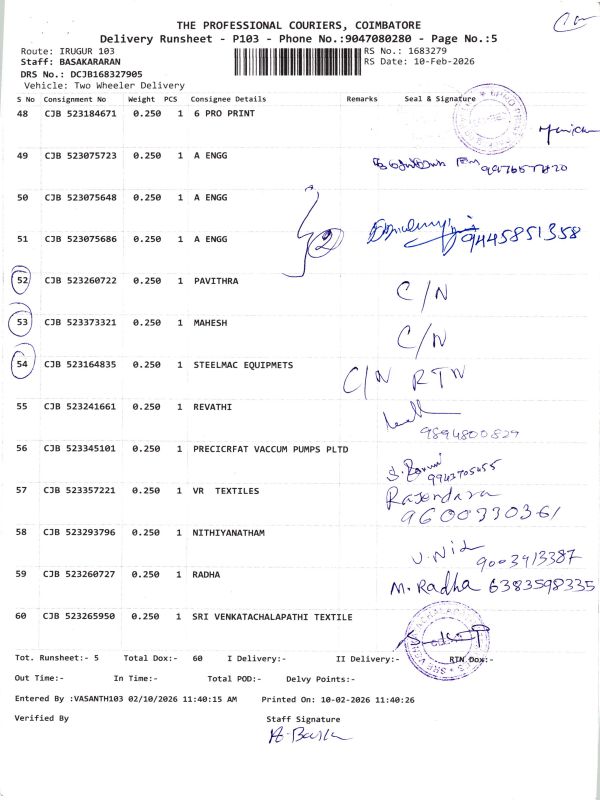 THE PROFESSIONAL COURIERS, COIMBATORE
Delivery Runsheet - P103 - Phone No.:9047080280 - Page No.:5
Route: IRUGUR 103 RS No.: 1683279
Staff: BASAKARARAN RS Date: 10-Feb-2026
DRS No.: DCJB168327905
Vehicle: Two Wheeler Delivery
S No Consignment No Weight PCS Consignee Details Remarks Seal & Signature
48 CJB 523184671 0.250 1 6 PRO PRINT
49 CJB 523075723 0.250 1 A ENGG
50 CJB 523075648 0.250 1 A ENGG
51 CJB 523075686 0.250 1 A ENGG 2 9445851358
52 CJB 523260722 0.250 1 PAVITHRA C/N
53 CJB 523373321 0.250 1 MAHESH C/N
54 CJB 523164835 0.250 1 STEELMAC EQUIPMETS C/N RTN
55 CJB 523241661 0.250 1 REVATHI
9894800829
56 CJB 523345101 0.250 1 PRECICRFAT VACCUM PUMPS PLTD
57 CJB 523357221 0.250 1 VR TEXTILES Rajendara
9600330361
58 CJB 523293796 0.250 1 NITHIYANATHAM
9003913387
59 CJB 523260727 0.250 1 RADHA M. Radha 6383598335
60 CJB 523265950 0.250 1 SRI VENKATACHALAPATHI TEXTILE
Tot. Runsheet:- 5 Total Dox:- 60 I Delivery:- II Delivery:- RTN Dox:-
Out Time:- In Time:- Total POD:- Delvy Points:-
Entered By :VASANTH103 02/10/2026 11:40:15 AM Printed On: 10-02-2026 11:40:26
Verified By Staff Signature